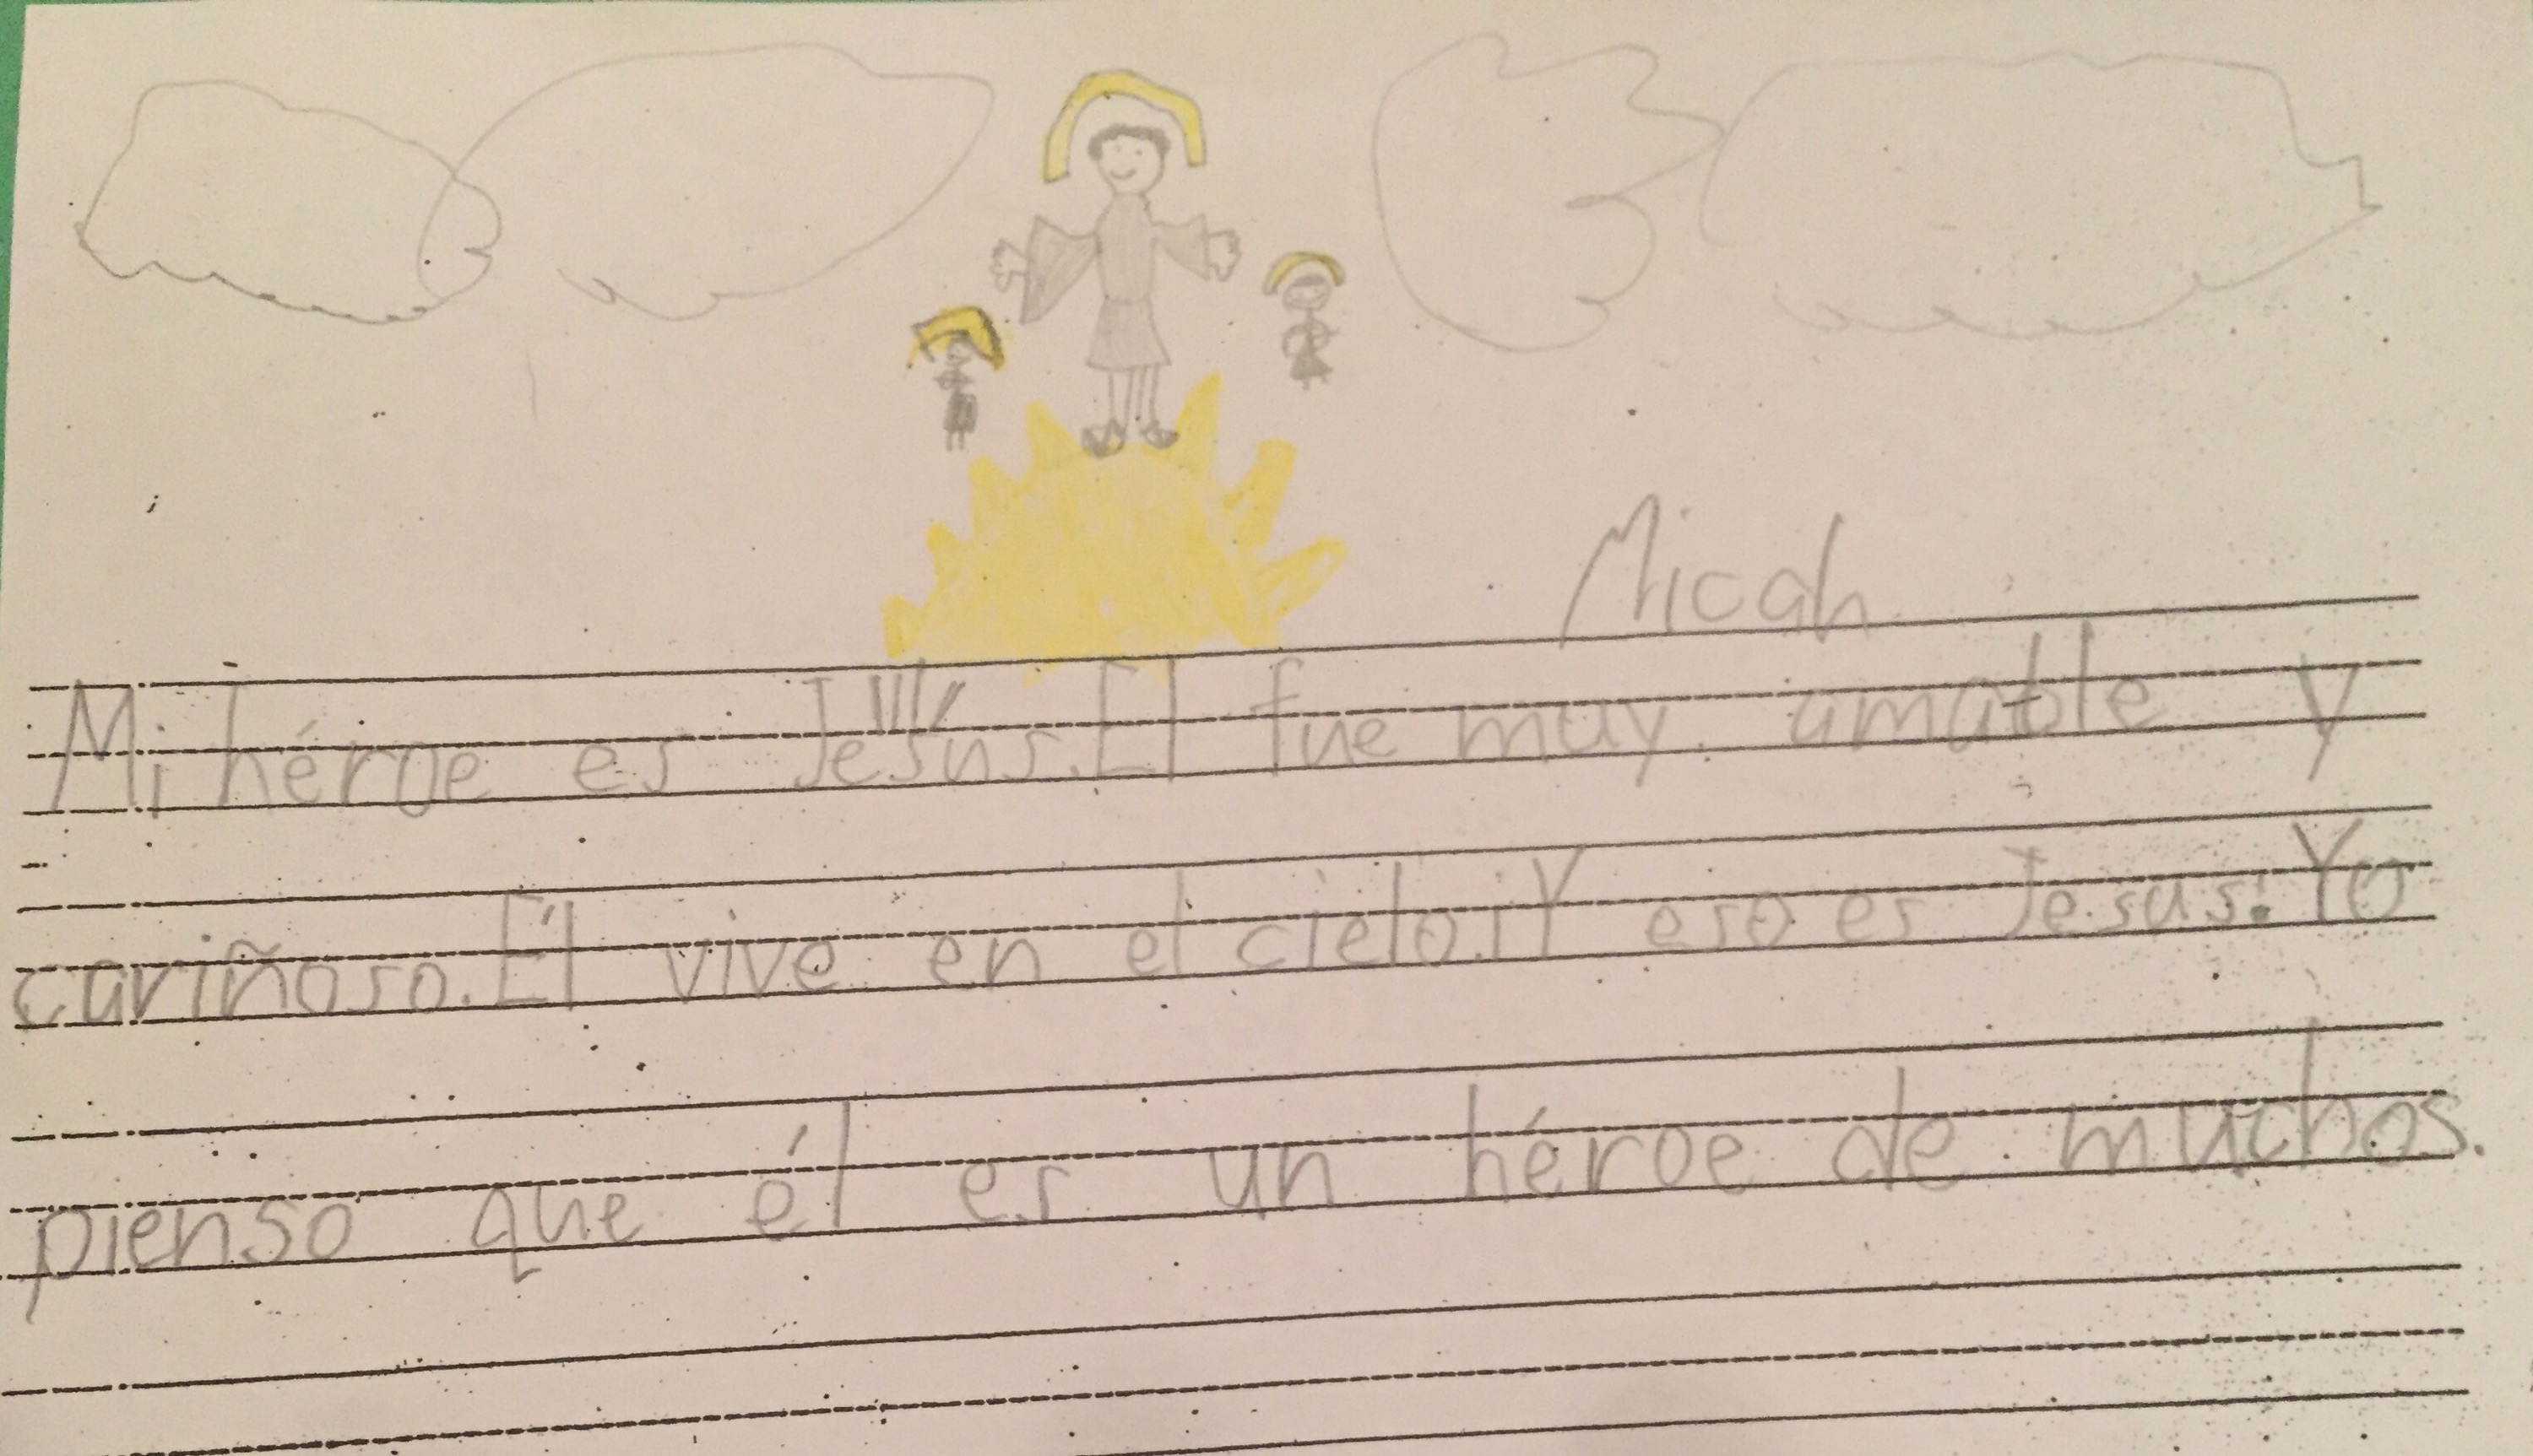 Micah
Mi héroe es Jesus. El fue muy amable y
cariñoso. Él vive en el cielo. ¡Y eso es Jesus! Yo
pienso que él es un héroe de muchos.